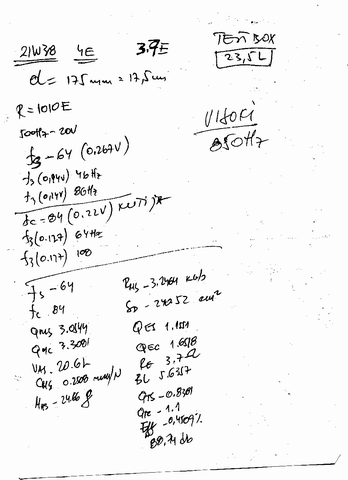 21W38 4E 3.7E
TEST BOX
23,5L
d = 175mm = 17,5cm
R = 1010E
500Hz - 20V
VISOKI
850Hz
f3 - 64 (0,267V)
f3 (0,194V) 46Hz
f3 (0,194V) 86Hz
fc = 84 (0.22V) KUTIJA
f3 (0.177) 64Hz
f3 (0.177) 108
fs - 64
fc 84
Qms 3.0844
Qmc 3.3081
VAS. 20.6L
Cms 0.2508 mm/N
Mms - 24.66 g
Rms - 3.2484 kg/s
SD - 240.52 cm²
QES 1.1551
QEC 1.6578
RE 3.7Ω
BL 5.6357
QTS - 0.8381
QTC - 1.1
Eff - 0,4509%
88.74 db